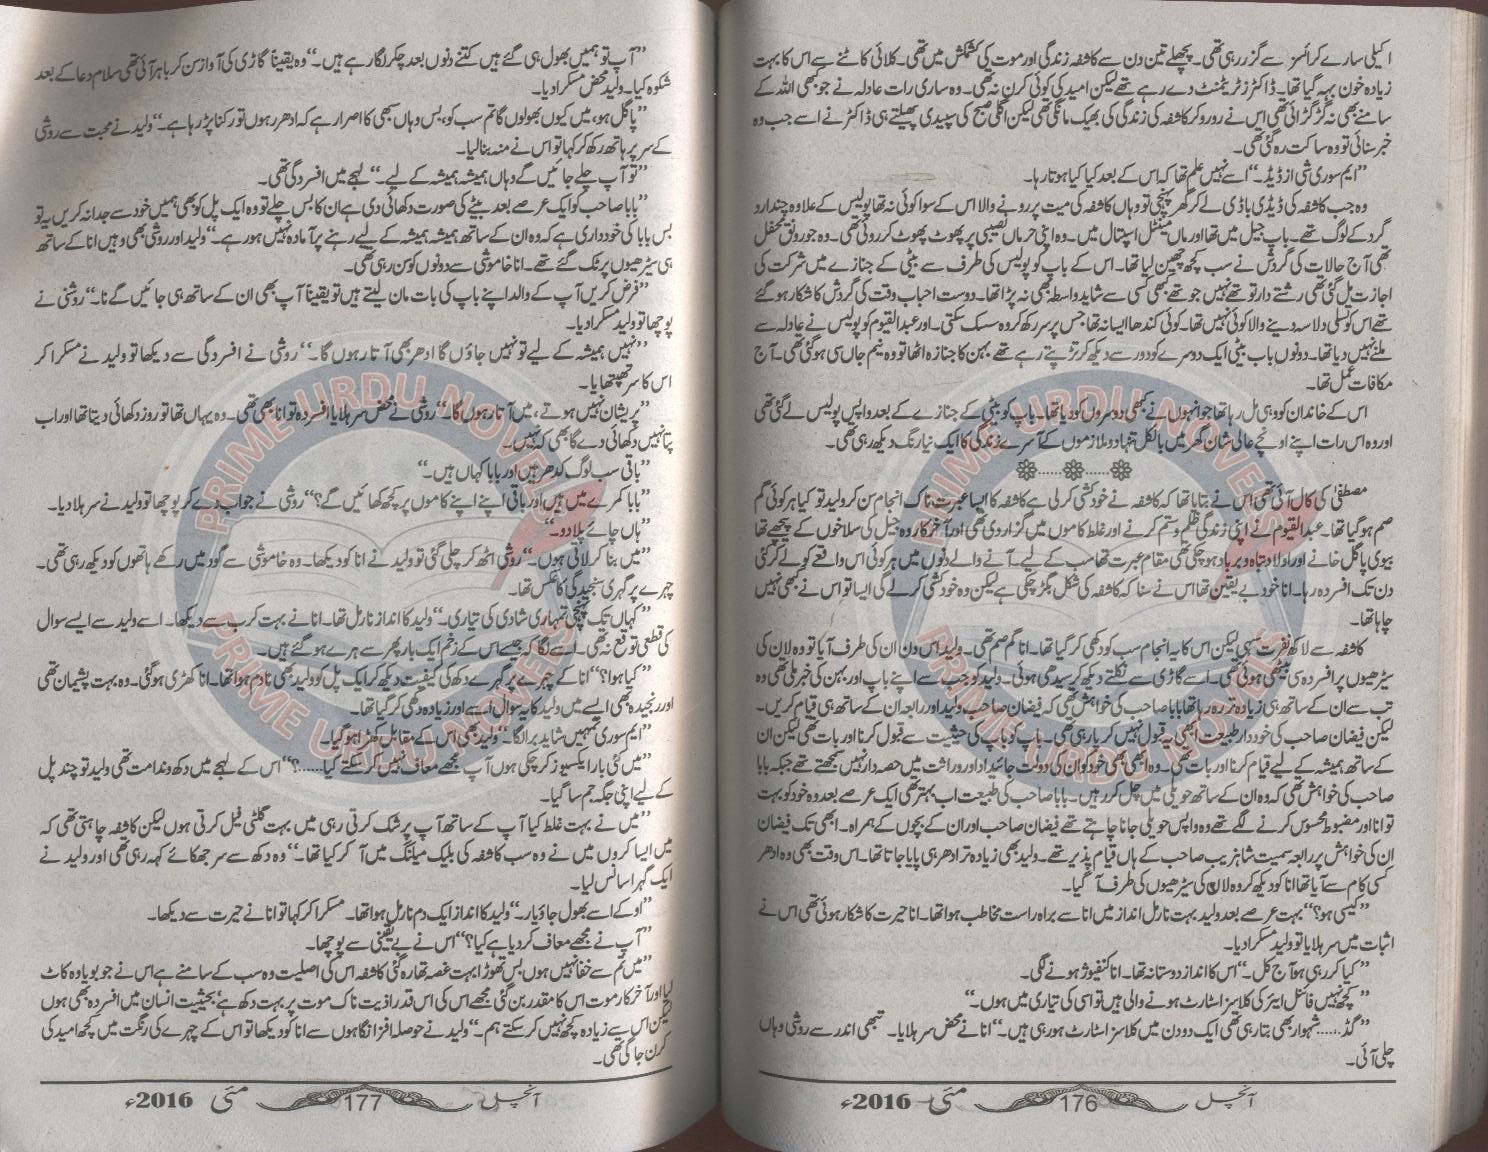 اکیلی سارے کرائسز سے گزر رہی تھی۔ پچھلے تین دن سے کاشفہ زندگی اور موت کی کشمکش میں تھی۔ کلائی کاٹنے سے اس کا بہت
زیادہ خون بہہ گیا تھا۔ ڈاکٹرز ٹریٹمنٹ دے رہے تھے لیکن امید کی کوئی کرن نہ تھی۔ وہ ساری رات عادلہ نے جو کبھی اللہ کے
سامنے بھی نہ گڑگڑائی تھی اس نے رو رو کر کاشفہ کی زندگی کی بھیک مانگی تھی لیکن اگلی صبح کی سپیدی پھیلتے ہی ڈاکٹر نے اسے جب وہ
خبر سنائی تو وہ ساکت رہ گئی تھی۔
”ایم سوری شی از ڈیڈ۔“ اسے نہیں علم تھا کہ اس کے بعد کیا کیا ہوتا رہا۔
وہ جب کاشفہ کی ڈیڈی باڈی لے کر گھر پہنچی تو وہاں کاشفہ کی میت پر رونے والا اس کے سوا کوئی نہ تھا پولیس کے علاوہ چند ارد
گرد کے لوگ تھے۔ باپ جیل میں تھا اور ماں مینٹل اسپتال میں۔ وہ اپنی حرماں نصیبی پر پھوٹ پھوٹ کر روئی تھی۔ وہ جو رونق محفل
تھی آج حالات کی گردش نے سب کچھ چھین لیا تھا۔ اس کے باپ کو پولیس کی طرف سے بیٹی کے جنازے میں شرکت کی
اجازت مل گئی تھی رشتے دار تو تھے نہیں جو تھے بھی کسی سے شاید واسطہ بھی نہ پڑا تھا۔ دوست احباب وقت کی گردش کا شکار ہو گئے
تھے اس کو تسلی دلاسہ دینے والا کوئی نہیں تھا۔ کوئی کندھا ایسا نہ تھا جس پر سر رکھ کر وہ سسک سکتی۔ اور عبدالقیوم کو پولیس نے عادلہ سے
ملنے نہیں دیا تھا۔ دونوں باپ بیٹی ایک دوسرے کو دور سے دیکھ کر تڑپتے رہے تھے بہن کا جنازہ اٹھا تو وہ نیم جاں سی ہو گئی تھی۔ آج
مکافات عمل تھا۔
اس کے خاندان کو وہی مل رہا تھا جو انہوں نے کبھی دوسروں کو دیا تھا۔ باپ کو بیٹی کے جنازے کے بعد واپس پولیس لے گئی تھی
اور وہ اس رات اپنے اونچے عالی شان گھر میں بالکل تنہا دو ملازموں کے آسرے زندگی کا ایک نیا رنگ دیکھ رہی تھی۔
❁……❁……❁
مصطفیٰ کی کال آئی تھی اس نے بتایا تھا کہ کاشفہ نے خودکشی کر لی ہے کاشفہ کا ایسا عبرت ناک انجام سن کر ولید تو کیا ہر کوئی گم
صم ہو گیا تھا۔ عبدالقیوم نے اپنی زندگی ظلم و ستم کرنے اور غلط کاموں میں گزار دی تھی اور آخر کار وہ جیل کی سلاخوں کے پیچھے تھا
بیوی پاگل خانے اور اولاد تباہ و برباد ہو چکی تھی مقام عبرت تھا سب کے لیے۔ آنے والے دنوں میں ہر کوئی اس واقعے کو لے کر کئی
دن تک افسردہ رہا۔ انا خود بے یقین تھا اس نے سنا کہ کاشفہ کی شکل بگڑ چکی ہے لیکن وہ خودکشی کر لے گی ایسا تو اس نے کبھی نہیں
چاہا تھا۔
کاشفہ سے لاکھ نفرت سہی لیکن اس کا یہ انجام سب کو دکھی کر گیا تھا۔ انا گم صم تھی۔ ولید اس دن ان کی طرف آیا تو وہ لان کی
سیڑھیوں پر افسردہ سی بیٹھی ہوئی تھی۔ اسے گاڑی سے نکلتے دیکھ کر سیدھی ہوئی۔ ولید کو جب سے اپنے باپ اور بہن کی خبر ملی تھی وہ
تب سے ان کے ساتھ ہی زیادہ تر رہ رہا تھا بابا صاحب کی خواہش تھی کہ فیضان صاحب ولید اور رابعہ ان کے ساتھ ہی قیام کریں۔
لیکن فیضان صاحب کی خوددار طبیعت ابھی یہ قبول نہیں کر پا رہی تھی۔ باپ کو باپ کی حیثیت سے قبول کرنا اور بات تھی لیکن ان
کے ساتھ ہمیشہ کے لیے قیام کرنا اور بات تھی۔ وہ ابھی بھی خود کو ان کی دولت جائیداد اور وراثت میں حصہ دار نہیں سمجھتے تھے جبکہ بابا
صاحب کی خواہش تھی کہ وہ ان کے ساتھ حویلی میں چل کر رہیں۔ بابا صاحب کی طبیعت اب بہتر تھی ایک عرصے بعد وہ خود کو بہت
توانا اور مضبوط محسوس کرنے لگے تھے وہ واپس حویلی جانا چاہتے تھے فیضان صاحب اور ان کے بچوں کے ہمراہ۔ ابھی تک فیضان
ان کی خواہش پر رابعہ سمیت شاہزیب صاحب کے ہاں قیام پذیر تھے۔ ولید بھی زیادہ تر ادھر ہی پایا جاتا تھا۔ اس وقت بھی وہ ادھر
کسی کام سے آیا تھا انا کو دیکھ کر وہ لان کی سیڑھیوں کی طرف آ گیا۔
”کیسی ہو؟“ بہت عرصے بعد ولید بہت نارمل انداز میں انا سے براہ راست مخاطب ہوا تھا۔ انا حیرت کا شکار ہوئی تھی اس نے
اثبات میں سر ہلایا تو ولید مسکرا دیا۔
”کیا کر رہی ہو آج کل۔“ اس کا انداز دوستانہ تھا۔ انا کنفیوژ ہونے لگی۔
”کچھ نہیں فائنل ایئر کی کلاسز اسٹارٹ ہونے والی ہیں تو اسی کی تیاری میں ہوں۔“
”گڈ…… شہوار بھی بتا رہی تھی ایک دو دن میں کلاسز اسٹارٹ ہو رہی ہیں۔“ انا نے محض سر ہلایا۔ تبھی اندر سے روشی وہاں
چلی آئی۔
آنچل 176 مئی 2016ء
”آپ تو ہمیں بھول ہی گئے ہیں کتنے دنوں بعد چکر لگا رہے ہیں۔“ وہ یقیناً گاڑی کی آواز سن کر باہر آئی تھی سلام دعا کے بعد
شکوہ کیا۔ ولید محض مسکرا دیا۔
”پاگل ہو، میں کیوں بھولوں گا تم سب کو، بس وہاں سبھی کا اصرار ہے کہ ادھر رہوں تو رکنا پڑ رہا ہے۔“ ولید نے محبت سے روشی
کے سر پر ہاتھ رکھ کر کہا تو اس نے منہ بنا لیا۔
”تو آپ چلے جائیں گے وہاں ہمیشہ ہمیشہ کے لیے۔“ لہجے میں افسردگی تھی۔
”بابا صاحب کو ایک عرصے بعد بیٹے کی صورت دکھائی دی ہے ان کا بس چلے تو وہ ایک پل کو بھی ہمیں خود سے جدا نہ کریں یہ تو
بس بابا کی خودداری ہے کہ وہ ان کے ساتھ ہمیشہ ہمیشہ کے لیے رہنے پر آمادہ نہیں ہو رہے۔“ ولید اور روشی بھی وہیں انا کے ساتھ
ہی سیڑھیوں پر ٹک گئے تھے۔ انا خاموشی سے دونوں کو سن رہی تھی۔
”فرض کریں آپ کے والد اپنے باپ کی بات مان لیتے ہیں تو یقیناً آپ بھی ان کے ساتھ ہی جائیں گے نا۔“ روشنی نے
پوچھا تو ولید مسکرا دیا۔
”نہیں ہمیشہ کے لیے تو نہیں جاؤں گا ادھر بھی آتا رہوں گا۔“ روشی نے افسردگی سے دیکھا تو ولید نے مسکرا کر
اس کا سر تھپتھپایا۔
”پریشان نہیں ہوتے، میں آتا رہوں گا۔“ روشی نے محض سر ہلایا افسردہ تو انا بھی تھی۔ وہ یہاں تھا تو روز دکھائی دیتا تھا اور اب
پتا نہیں دکھائی دے گا بھی کہ نہیں۔
”باقی سب لوگ کدھر ہیں اور بابا کہاں ہیں۔“
”بابا کمرے میں ہیں اور باقی اپنے اپنے کاموں پر کچھ کھائیں گے؟“ روشی نے جواب دے کر پوچھا تو ولید نے سر ہلا دیا۔
”ہاں چائے پلا دو۔“
”میں بنا کر لاتی ہوں۔“ روشی اٹھ کر چلی گئی تو ولید نے انا کو دیکھا۔ وہ خاموشی سے گود میں رکھے ہاتھوں کو دیکھ رہی تھی۔
چہرے پر گہری سنجیدگی کا عکس تھا۔
”کہاں تک پہنچی تمہاری شادی کی تیاری۔“ ولید کا انداز نارمل تھا۔ انا نے بہت کرب سے دیکھا۔ اسے ولید سے ایسے سوال
کی قطعی توقع نہ تھی۔ اسے لگا کہ جیسے اس کے زخم ایک بار پھر سے ہرے ہو گئے ہیں۔
”کیا ہوا؟“ انا کے چہرے پر گہرے دکھ کی کیفیت دیکھ کر ایک پل کو ولید بھی نادم ہوا تھا۔ انا کھڑی ہو گئی۔ وہ بہت پشیمان تھی
اور رنجیدہ بھی ایسے میں ولید کا یہ سوال اسے اور زیادہ دکھی کر گیا تھا۔
”ایم سوری تمہیں شاید برا لگا۔“ ولید بھی اس کے مقابل کھڑا ہو گیا۔
”میں کئی بار ایکسیوز کر چکی ہوں آپ مجھے معاف نہیں کر سکتے کیا……؟“ اس کے لہجے میں دکھ و ندامت تھی ولید تو چند پل
کے لیے اپنی جگہ جم سا گیا۔
”میں نے بہت غلط کیا آپ کے ساتھ آپ پر شک کرتی رہی میں بہت گلٹی فیل کرتی ہوں لیکن کاشفہ چاہتی تھی کہ
میں ایسا کروں میں نے وہ سب کاشفہ کی بلیک میلنگ میں آ کر کیا تھا۔“ وہ دکھ سے سر جھکائے کہہ رہی تھی اور ولید نے
ایک گہرا سانس لیا۔
”اوکے اسے بھول جاؤ یار۔“ ولید کا انداز ایک دم نارمل ہوا تھا۔ مسکرا کر کہا تو انا نے حیرت سے دیکھا۔
”آپ نے مجھے معاف کر دیا ہے کیا؟“ اس نے بے یقینی سے پوچھا۔
”میں تم سے خفا نہیں ہوں بس تھوڑا بہت غصہ تھا رہ گئی کاشفہ اس کی اصلیت وہ سب کے سامنے ہے اس نے جو بویا وہ کاٹ
لیا اور آخر کار موت اس کا مقدر بن گئی مجھے اس کی اس قدر اذیت ناک موت پر بہت دکھ ہے، بحیثیت انسان میں افسردہ بھی ہوں
لیکن اس سے زیادہ کچھ نہیں کر سکتے ہم۔“ ولید نے حوصلہ افزا نگاہوں سے انا کو دیکھا تو اس کے چہرے کی رنگت میں کچھ امید کی
کرن جاگی تھی۔
آنچل 177 مئی 2016ء
PRIME URDU NOVELS
PRIME URDU NOVELS
PRIME URDU NOVELS
PRIME URDU NOVELS